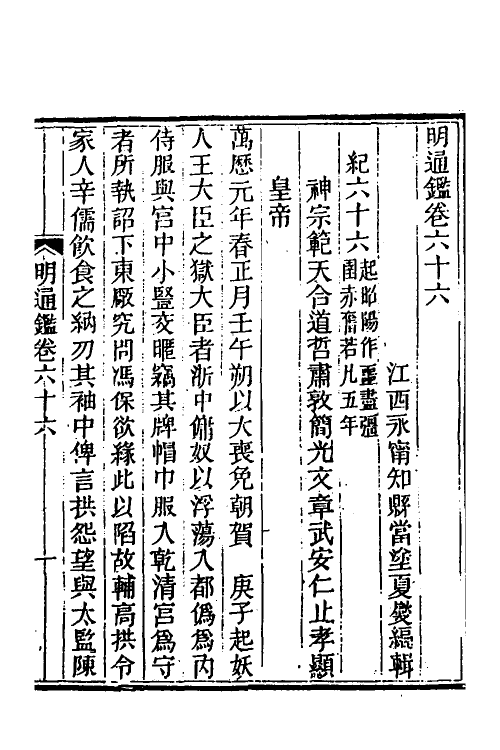 明通鑑卷六十六
江西永甯知縣當塗夏燮編輯
紀六十六起昭陽作噩盡彊圉赤奮若凡五年
神宗範天合道哲肅敦簡光文章武安仁止孝顯
皇帝
萬歷元年春正月壬午朔以大喪免朝賀　庚子起妖
人王大臣之獄大臣者浙中傭奴以浮蕩入都僞爲內
侍服與宮中小豎交暱竊其牌帽巾服入乾清宮爲守
者所執詔下東廠究問馮保欲緣此以陷故輔高拱令
家人辛儒飲食之納刃其袖中俾言拱怨望與太監陳
明通鑑卷六十六
一